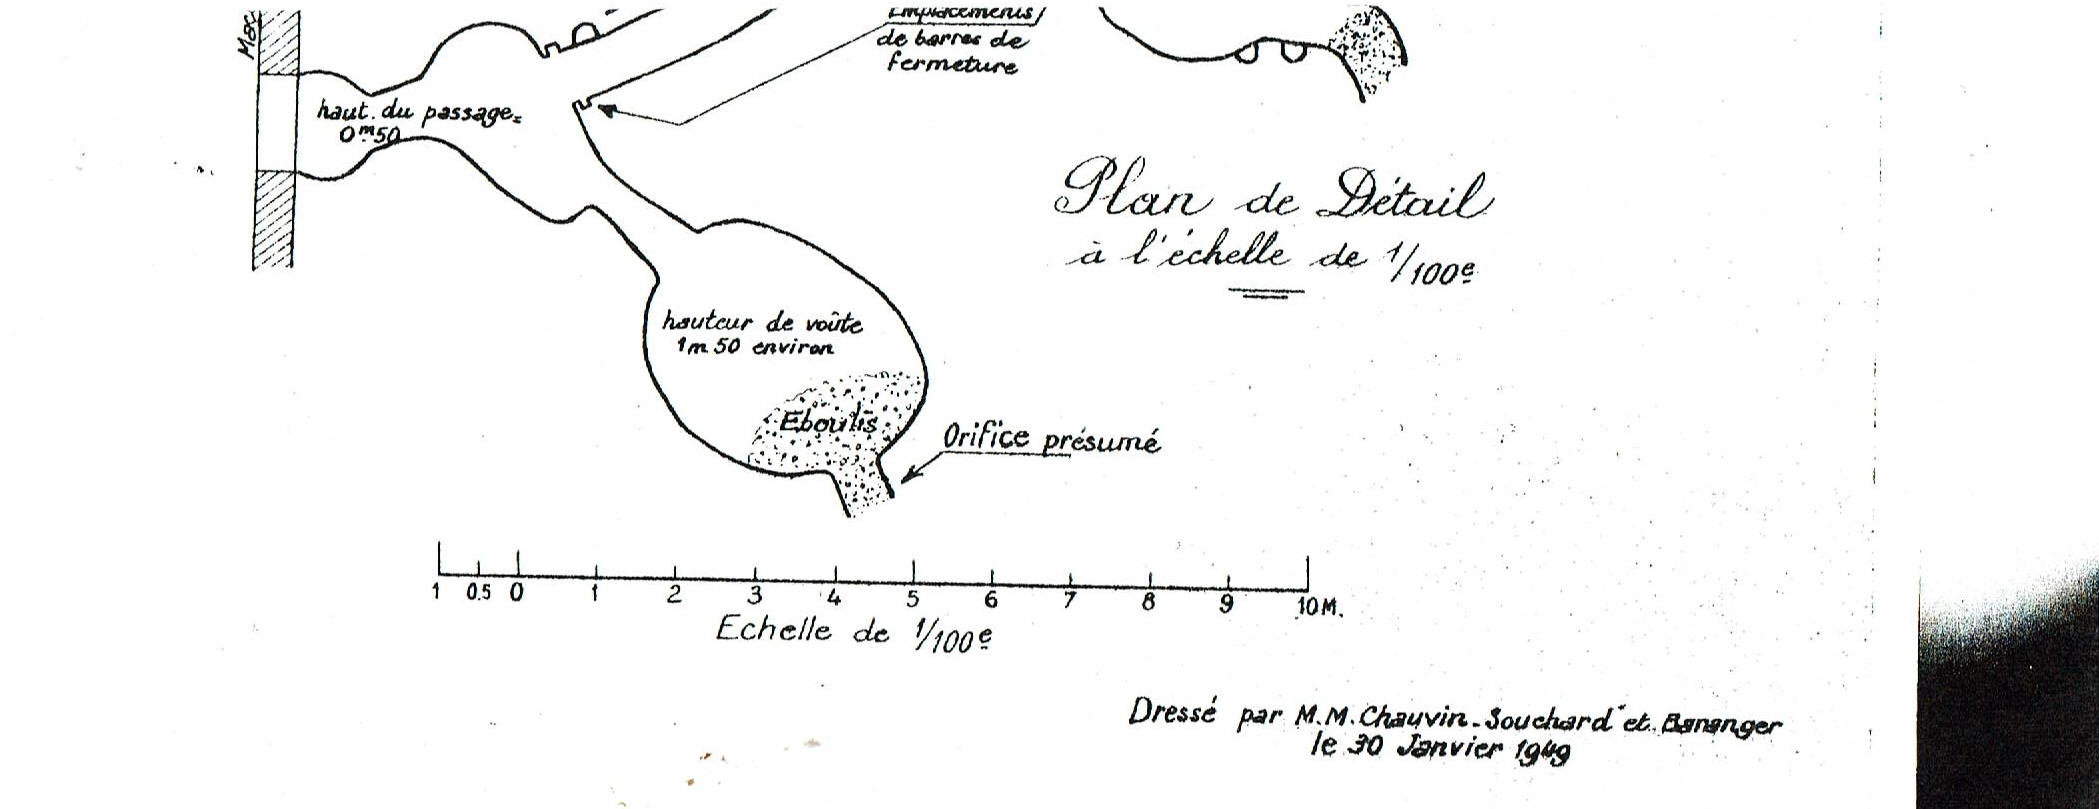 Emplacements
de barres de
fermeture
haut. du passage=
0m50
Plan de Détail
à l'échelle de 1/100e
hauteur de voûte
1m50 environ
Eboulis
Orifice présumé
1 0.5 0 1 2 3 4 5 6 7 8 9 10M.
Echelle de 1/100e
Dressé par M.M. Chauvin-Souchard et
le 30 Janvier 1949